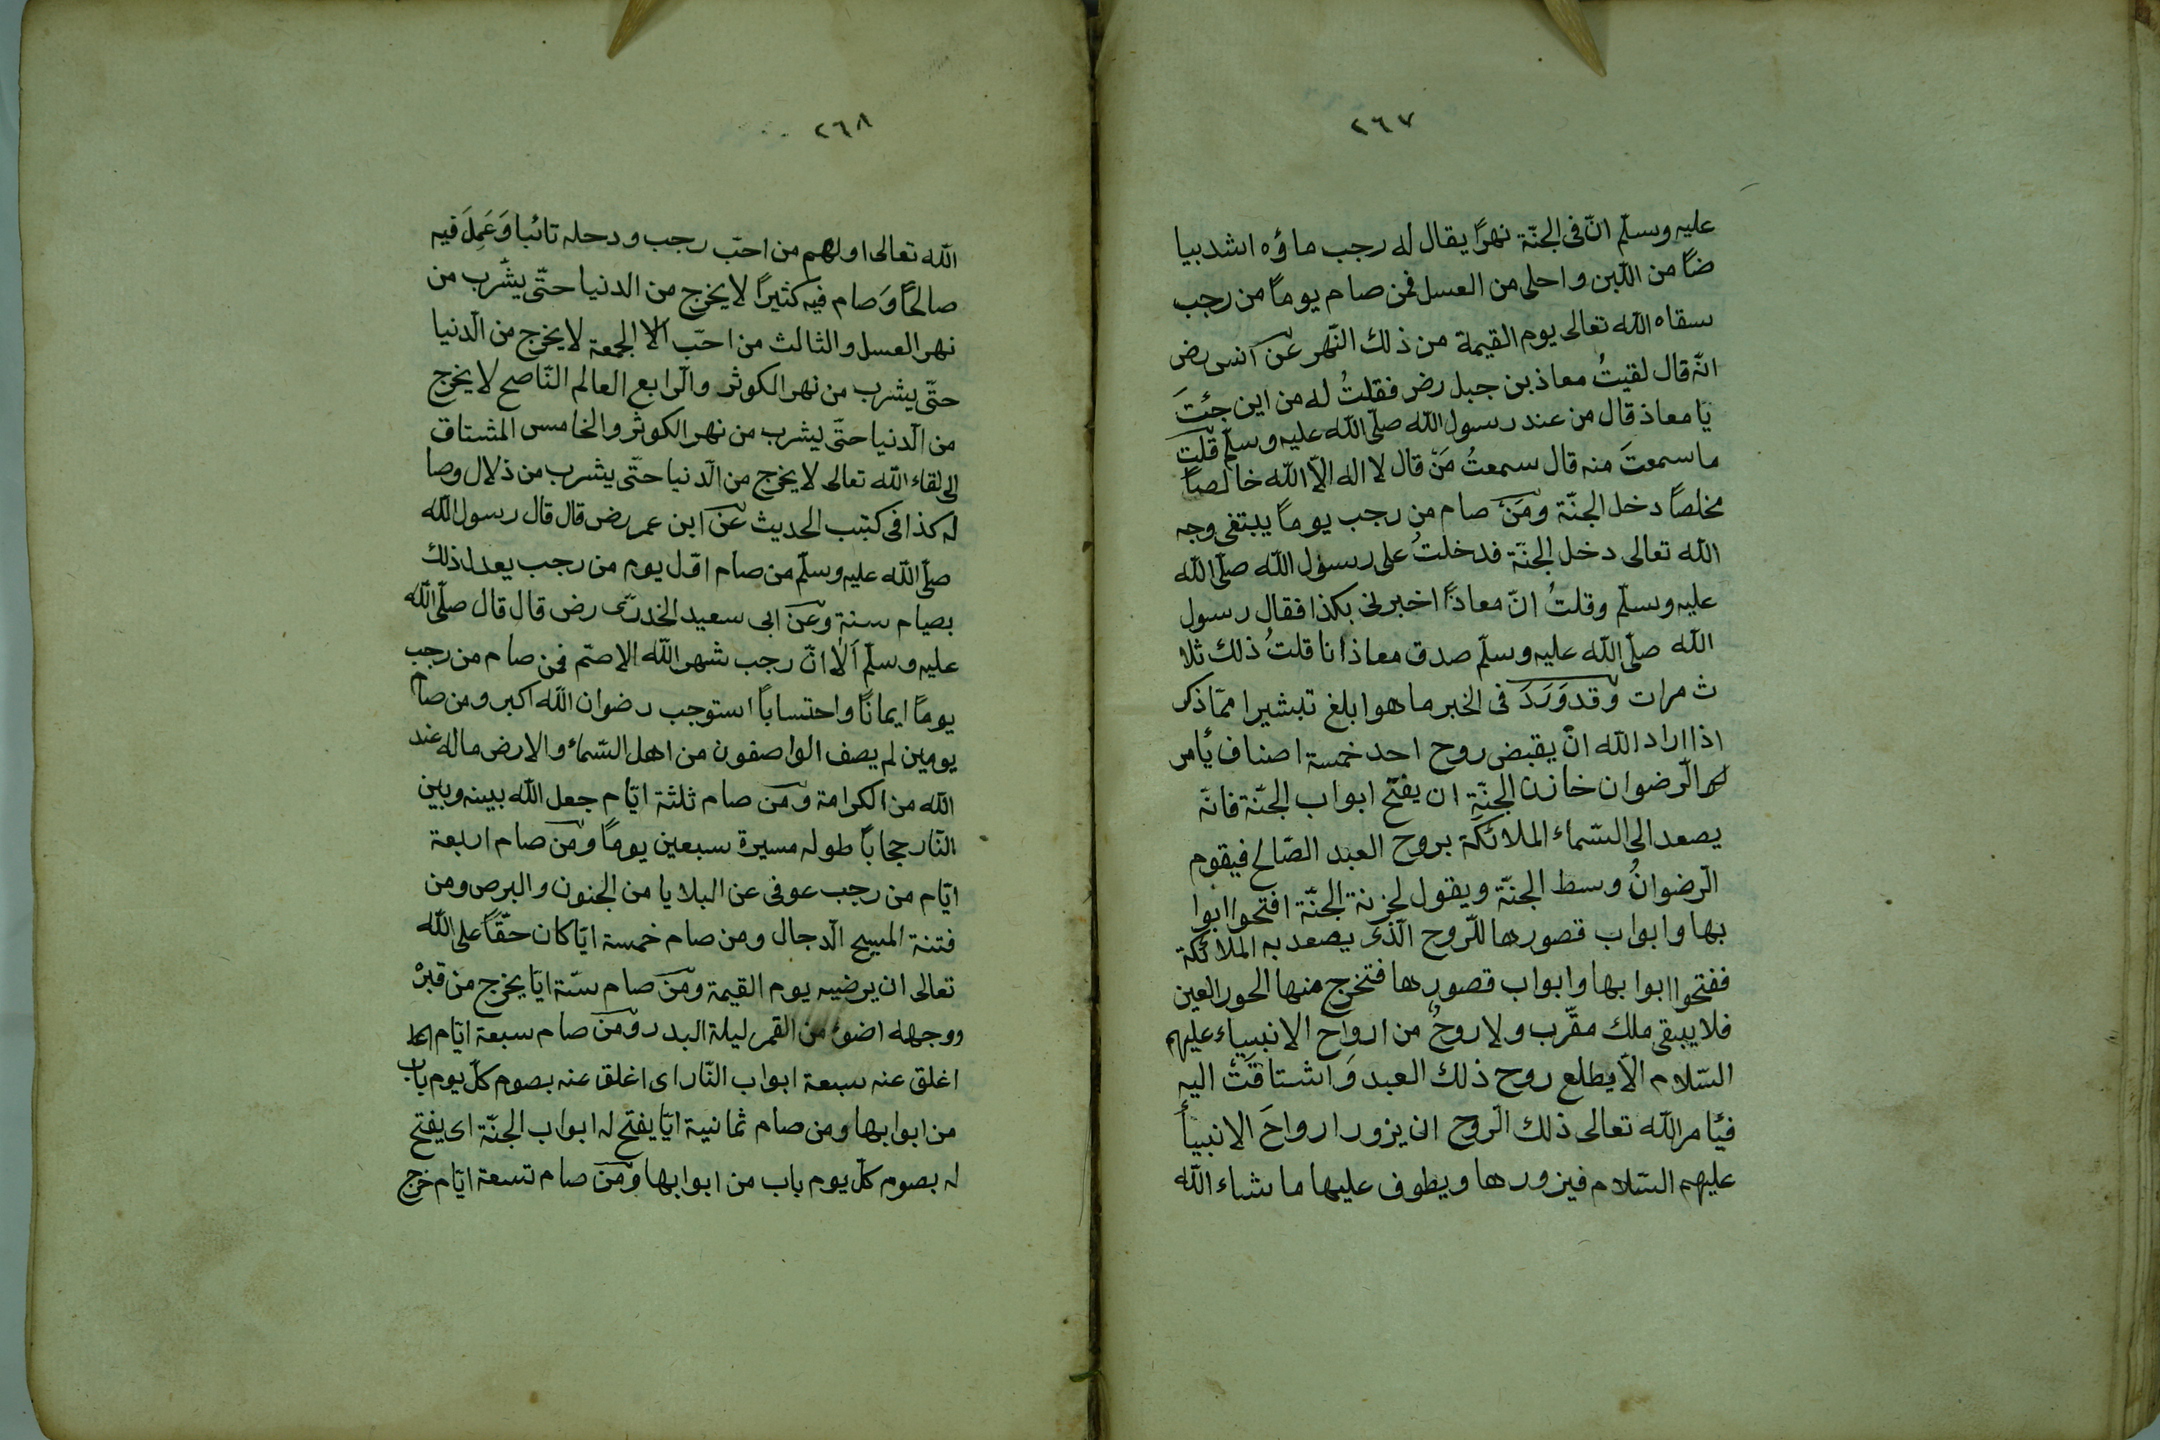 ٢٦٧
عليه وسلّم انّ فى الجنّة نهرًا يقال له رجب ماؤه اشد بيا
ضًا من اللبن واحلى من العسل فمن صام يومًا من رجب
سقاه الله تعالى يوم القيمة من ذلك النّهر عن انس رض
انّه قال لقيتُ معاذ بن جبل رض فقلتُ له من اين جئتَ
يا معاذ قال من عند رسول الله صلّى الله عليه وسلّم قلت
ما سمعتَ منه قال سمعتُ مَنْ قال لا اله الّا الله خالصًا
مخلصًا دخل الجنّة ومَنْ صام من رجب يومًا يبتغى وجه
الله تعالى دخل الجنّة فدخلتُ على رسول الله صلّى الله
عليه وسلّم وقلتُ انّ معاذًا اخبرنى بكذا فقال رسول
الله صلّى الله عليه وسلّم صدق معاذ انا قلتُ ذلك ثلا
ث مرات وقد وَرَدَ فى الخبر ما هو ابلغ تبشيرا ممّا ذكر
اذا اراد الله انْ يقبض روح احد خمسة اصناف يأمر
الرّضوان خازن الجنّة ان يفتح ابواب الجنّة فانّه
يصعد الى السّماء الملائكة بروح العبد الصّالح فيقوم
الرّضوانُ وسط الجنّة ويقول لخزنة الجنّة افتحوا ابوا
بها وابواب قصورها للرّوح الّذى يصعد به الملائكة
ففتحوا ابوابها وابواب قصورها فتخرج منها الحور العين
فلا يبقى ملك مقرّب ولا روحٌ من ارواح الانبياء عليهم
السّلام الّا يطلع روح ذلك العبد وَاشتاقَتْ اليه
فيأمر الله تعالى ذلك الرّوح ان يزور ارواحَ الانبيأ
عليهم السّلام فيزورها ويطوف عليها ما شاء الله
٢٦٨
الله تعالى اولهم من احبّ رجب ودحله تائبا وَعَمِلَ فيه
صالحًا وَصام فيه كثيرًا لا يخرج من الدنيا حتّى يشرب من
نهر العسل والثالث من احبّ الا الجمعة لا يخرج من الدّنيا
حتّى يشرب من نهر الكوثر والرّابع العالم النّاصح لا يخرج
من الّدنيا حتّى يشرب من نهر الكوثر والخامس المشتاق
الى لقاء الله تعالى لا يخرج من الّدنيا حتّى يشرب من ذلال وصا
له كذا فى كتب الحديث عن ابن عمر رض قال قال رسول الله
صلّى الله عليه وسلّم من صام اوّل يوم من رجب يعدل ذلك
بصيام سنة وعن ابى سعيد الخدرىّ رض قال قال صلّى الله
عليه وسلّم اَلا انّ رجب شهر الله الاصمّ فمن صام من رجب
يومًا ايمانًا واحتسابًا استوجب رضوان الله اكبر ومن صام
يومين لم يصف الواصفون من اهل السّماء والارض ماله عند
الله من الكرامة ومن صام ثلثة ايّام جعل الله بينه وبين
النّار حجابًا طوله مسيرة سبعين يومًا ومن صام اربعة
ايّام من رجب عوفى عن البلايا من الجنون والبرص ومن
فتنة المسيح الّدجال ومن صام خمسة ايّا كان حقًّا على الله
تعالى ان يرضيه يوم القيمة ومن صام ستّة ايّا يخرج من قبره
ووجهه اضوء من القمر ليلة البدر ومن صام سبعة ايّام
اغلق عنه سبعة ابواب النّار اى اغلق عنه بصوم كلّ يوم باب
من ابوابها ومن صام ثمانية ايّا يفتح له ابواب الجنّة اى يفتح
له بصوم كلّ يوم باب من ابوابها ومن صام تسعة ايّام خرج